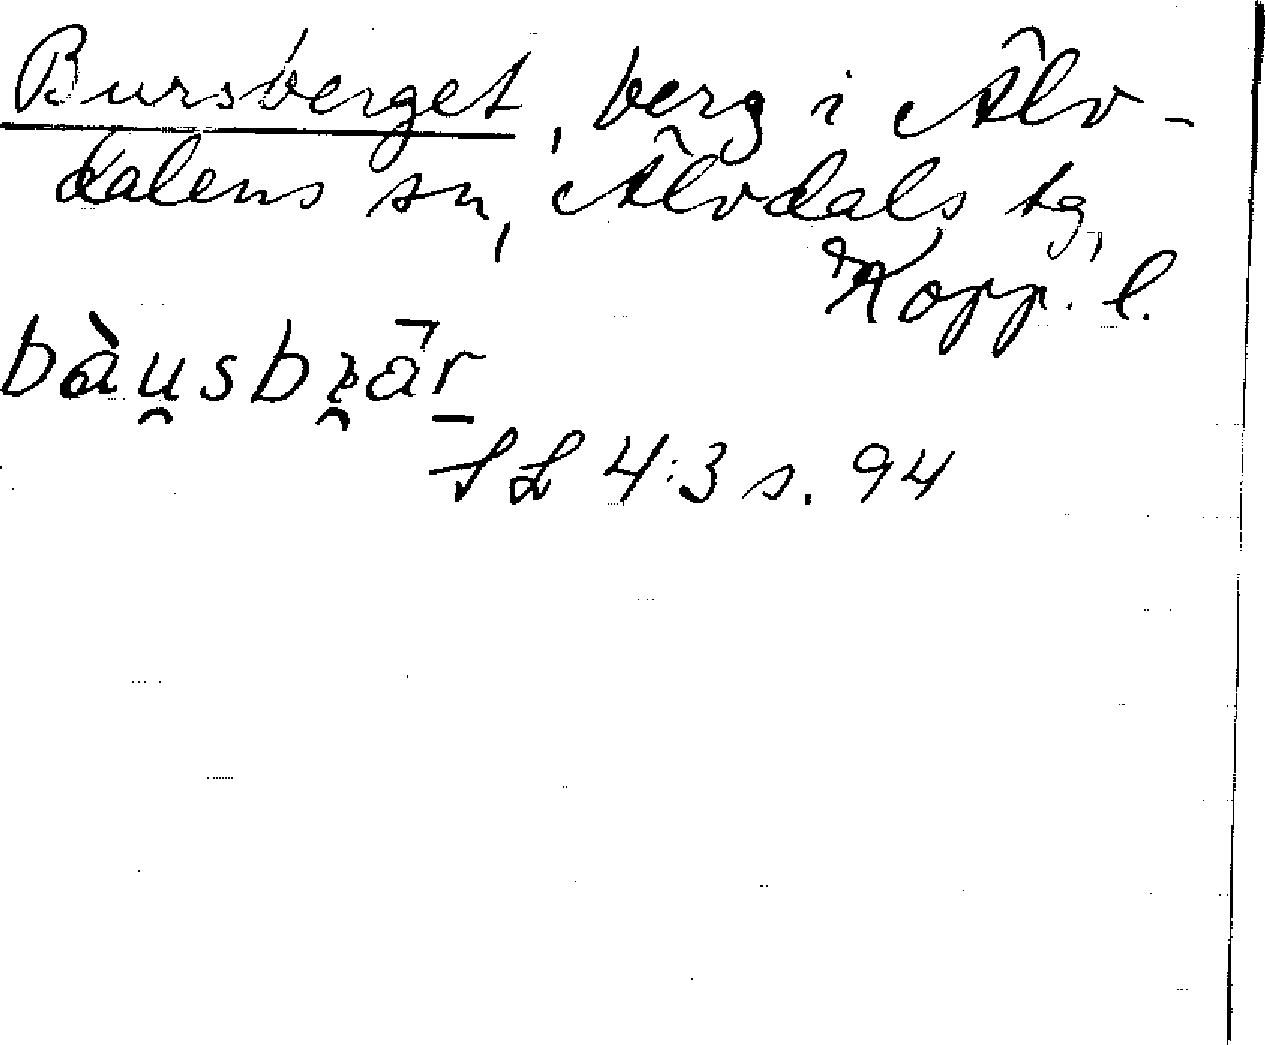 Bursberget, berg i Älv-
dalens sn, Älvdals tg,
Kopp. l.
bàu̯sbi̯ār̠
SL 4:3 s. 94